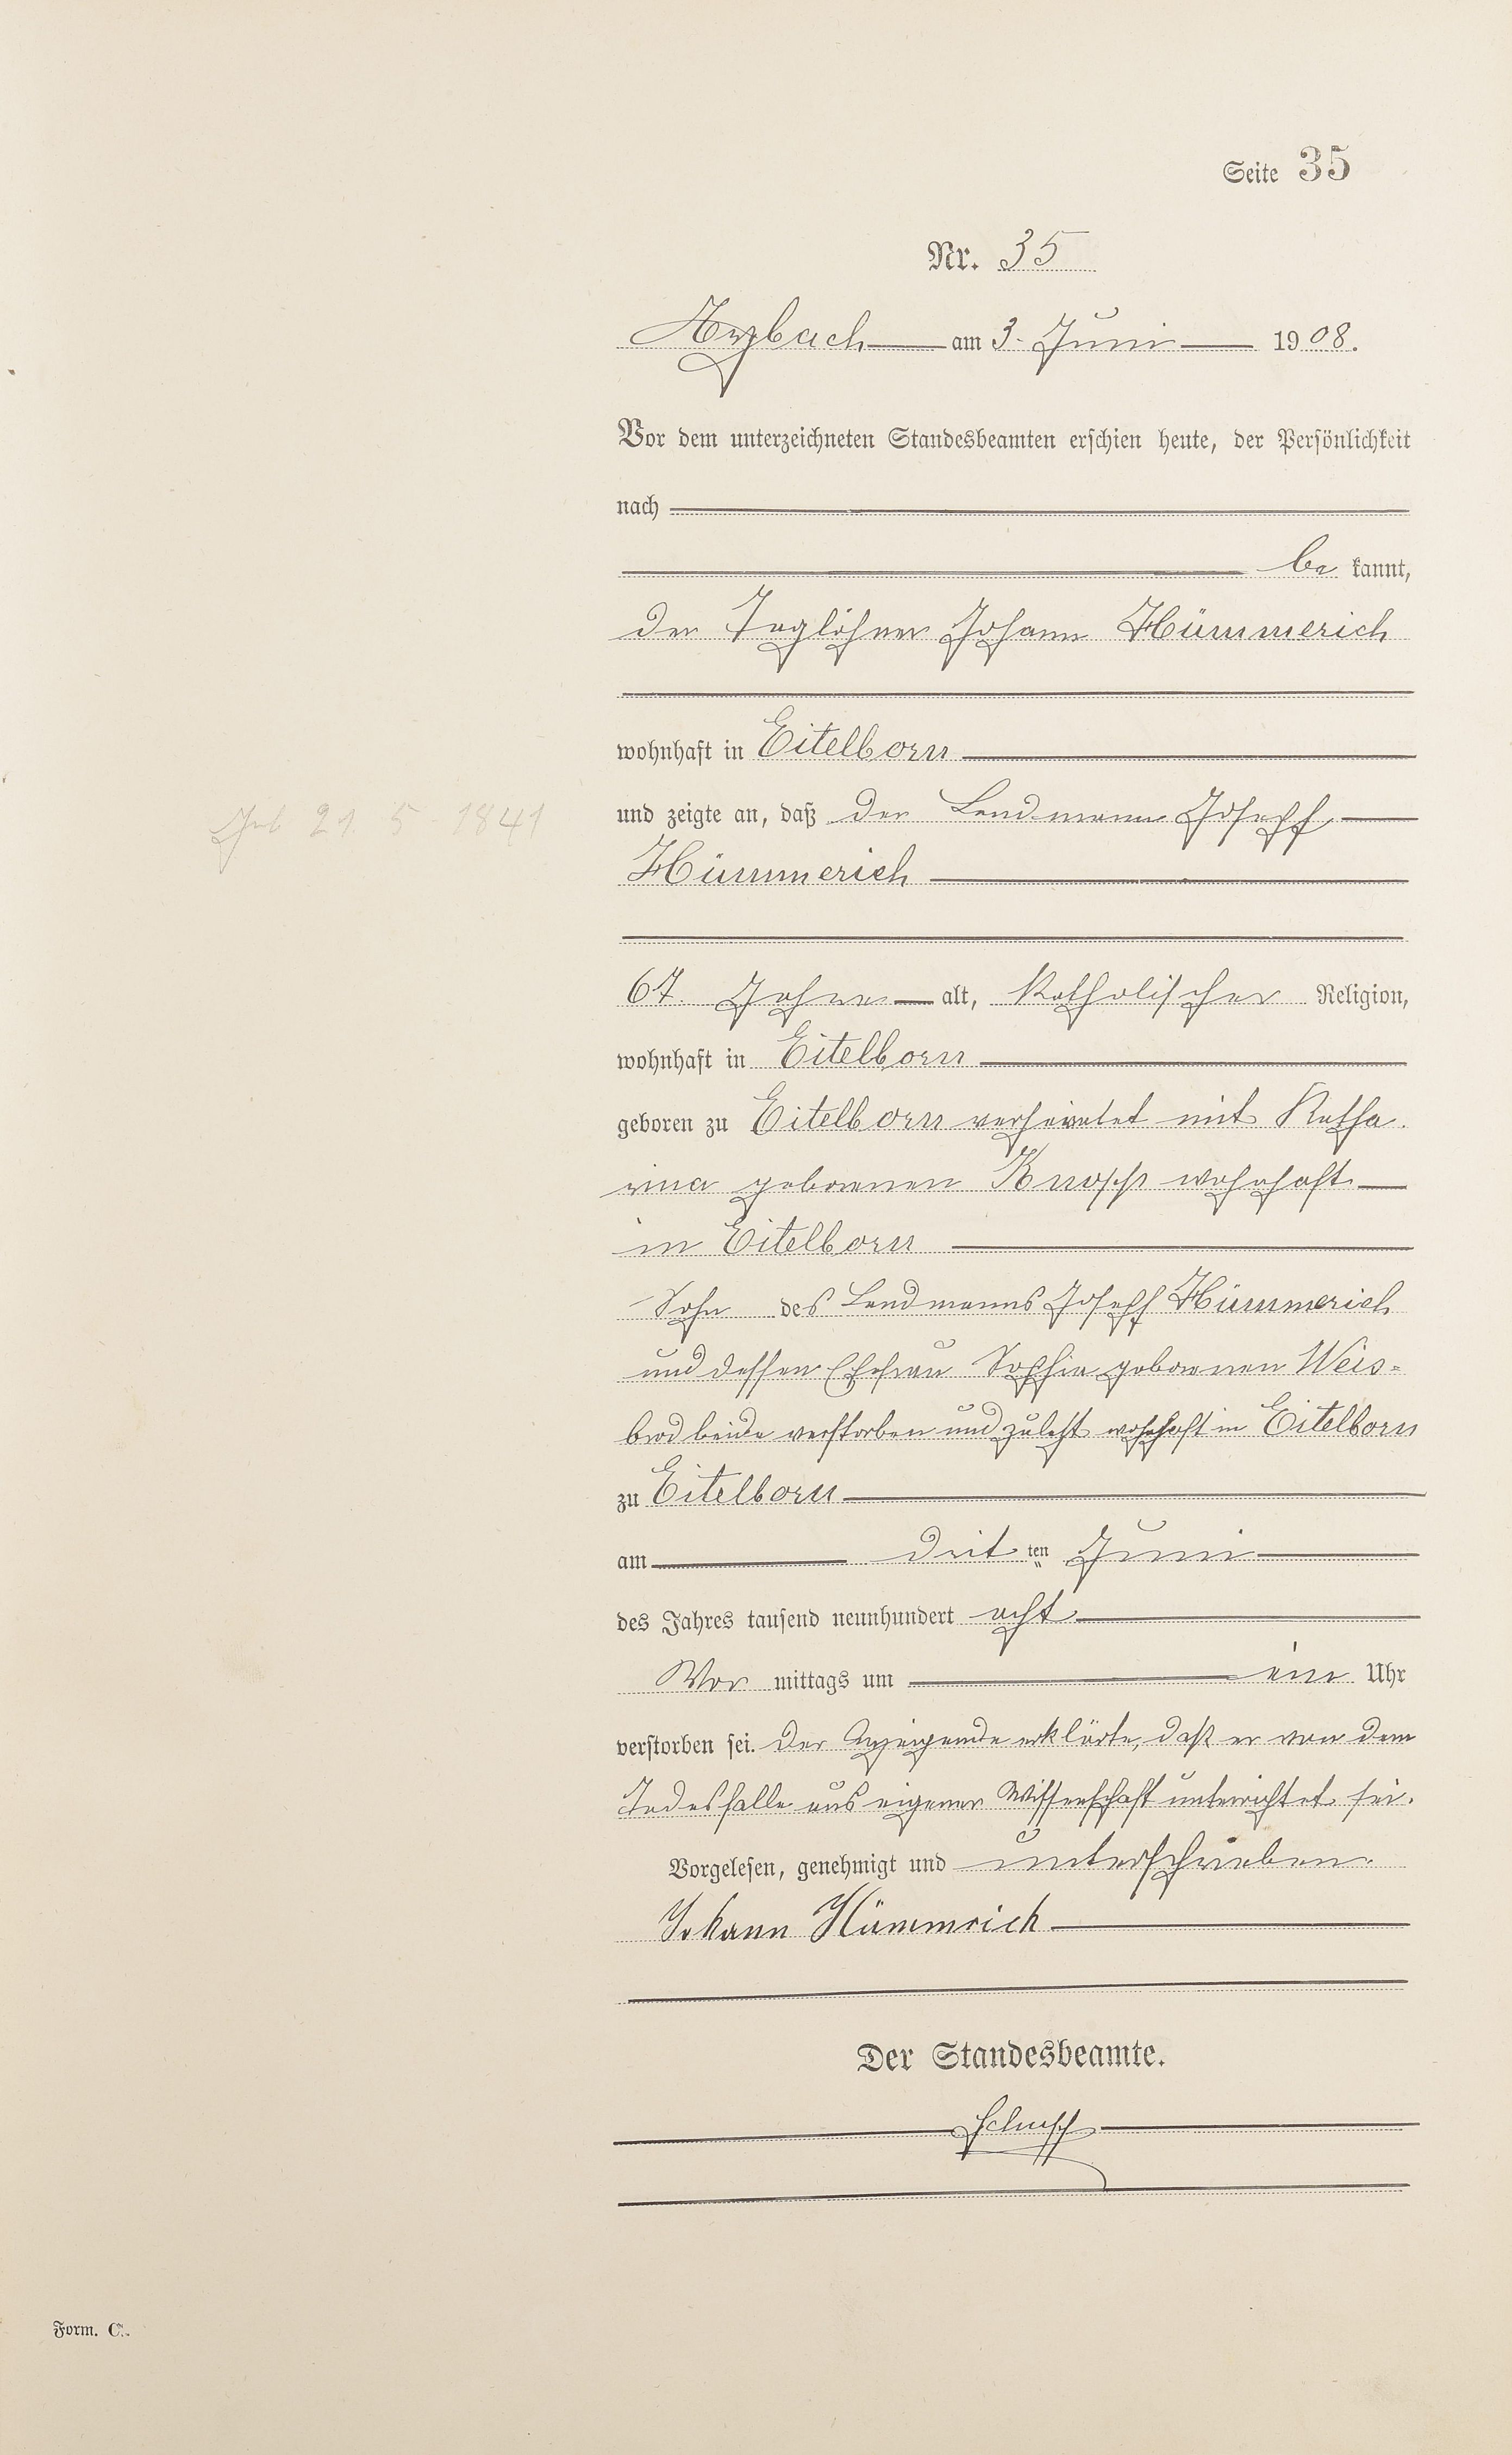 Seite 35
Nr. 35
Arzbach am 3. Juni 1908.
Vor dem unterzeichneten Standesbeamten erschien heute, der Persönlichkeit
nach
be kannt,
der Taglöhner Johann Hümmerich
wohnhaft in Eitelborn
und zeigte an, daß der Landmann Joseph
Geb 21. 5. 1841
Hümmerich
67 Jahre alt, katholischer Religion,
wohnhaft in Eitelborn
geboren zu Eitelborn verheiratet mit Katha
rina geborenen Knopp wohnhaft
in Eitelborn
Sohn des Landmanns Joseph Hümmerich
und dessen Ehefrau Sophie geborenen Weis=
brod beide verstorben und zuletzt wohnhaft in Eitelborn
zu Eitelborn
am drit ten Juni
des Jahres tausend neunhundert acht
Vor mittags um ein Uhr
verstorben sei. Der Anzeigende erklärte, daß er von dem
Todesfalle aus eigener Wissenschaft unterrichtet sei.
Vorgelesen, genehmigt und unterschrieben.
Johann Hümmrich
Der Standesbeamte.
Form. C.